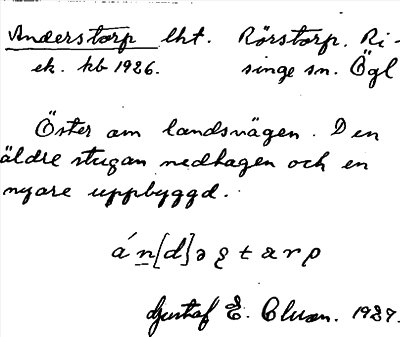 Anderstorp lht. Rörstorp. Ri-
ek. kb 1926. singe sn. Ögl
Öster om landsvägen. Den
äldre stugan nedtagen och en
nyare uppbyggd.
Gustaf E. Cluan. 1927.